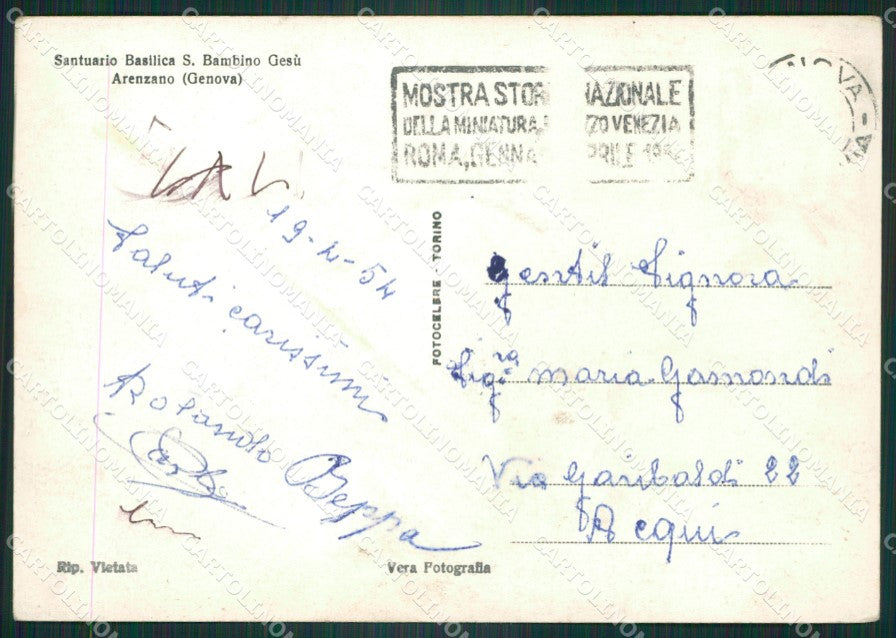 Santuario Basilica S. Bambino Gesù
Arenzano (Genova)
MOSTRA STOR NAZIONALE
DELLA MINIATURA, ZZO VENEZIA
ROMA, GENNA PRILE 19
OVA - 
19-4-54
Saluti carissimi
Rolando Beppa
Carlo
FOTOCELERE TORINO
Gentil Signora
Sig.ra maria Gamondi
Via Garibaldi 22
Acqui
Rip. Vietata
Vera Fotografia
CARTOLINOMANIA